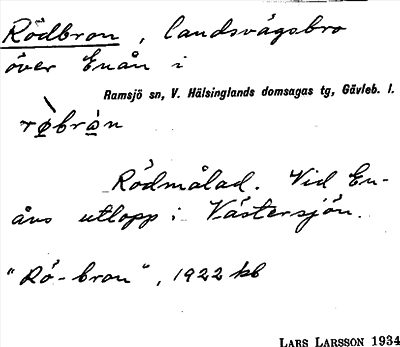 Rödbron, landsvägsbro
över Enån i
Ramsjö sn, V. Hälsinglands domsagas tg, Gävleb. l.
rø̀brån
Rödmålad. Vid En-
åns utlopp i Västersjön.
"Rö-bron", 1922 kb
LARS LARSSON 1934